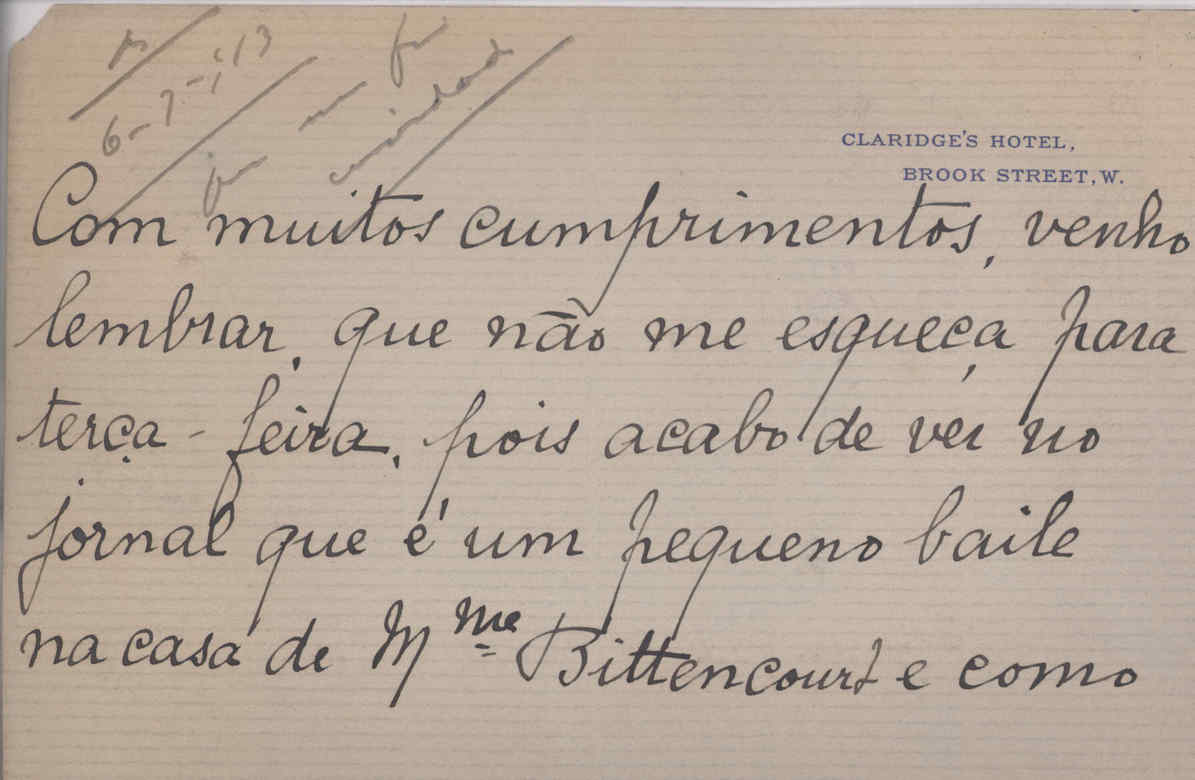 6-7-913
CLARIDGE'S HOTEL,
BROOK STREET, W.
Com muitos cumprimentos, venho
lembrar, que não me esqueça para
terça-feira, pois acabo de ver no
jornal que é um pequeno baile
na casa de Mme Bittencourt e como